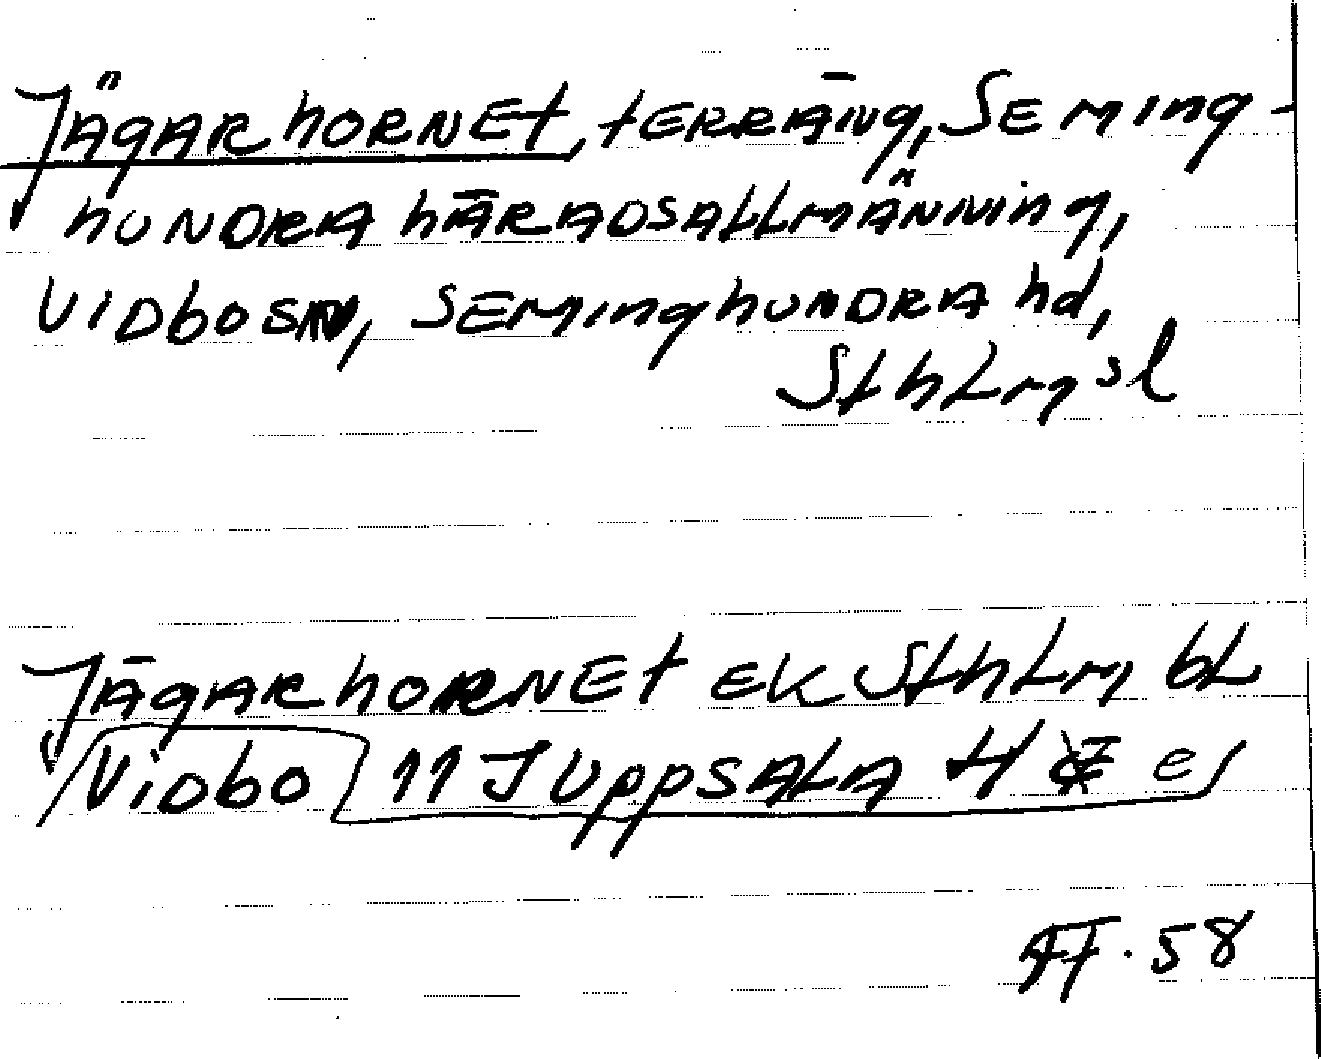 Jägarhornet, terräng, Seming-
hundra häradsallmänning,
Vidbo sn, Seminghundra hd,
Sthlms l
Jägarhornet ek Sthlm bl
Vidbo 11 J Uppsala 4 e
58